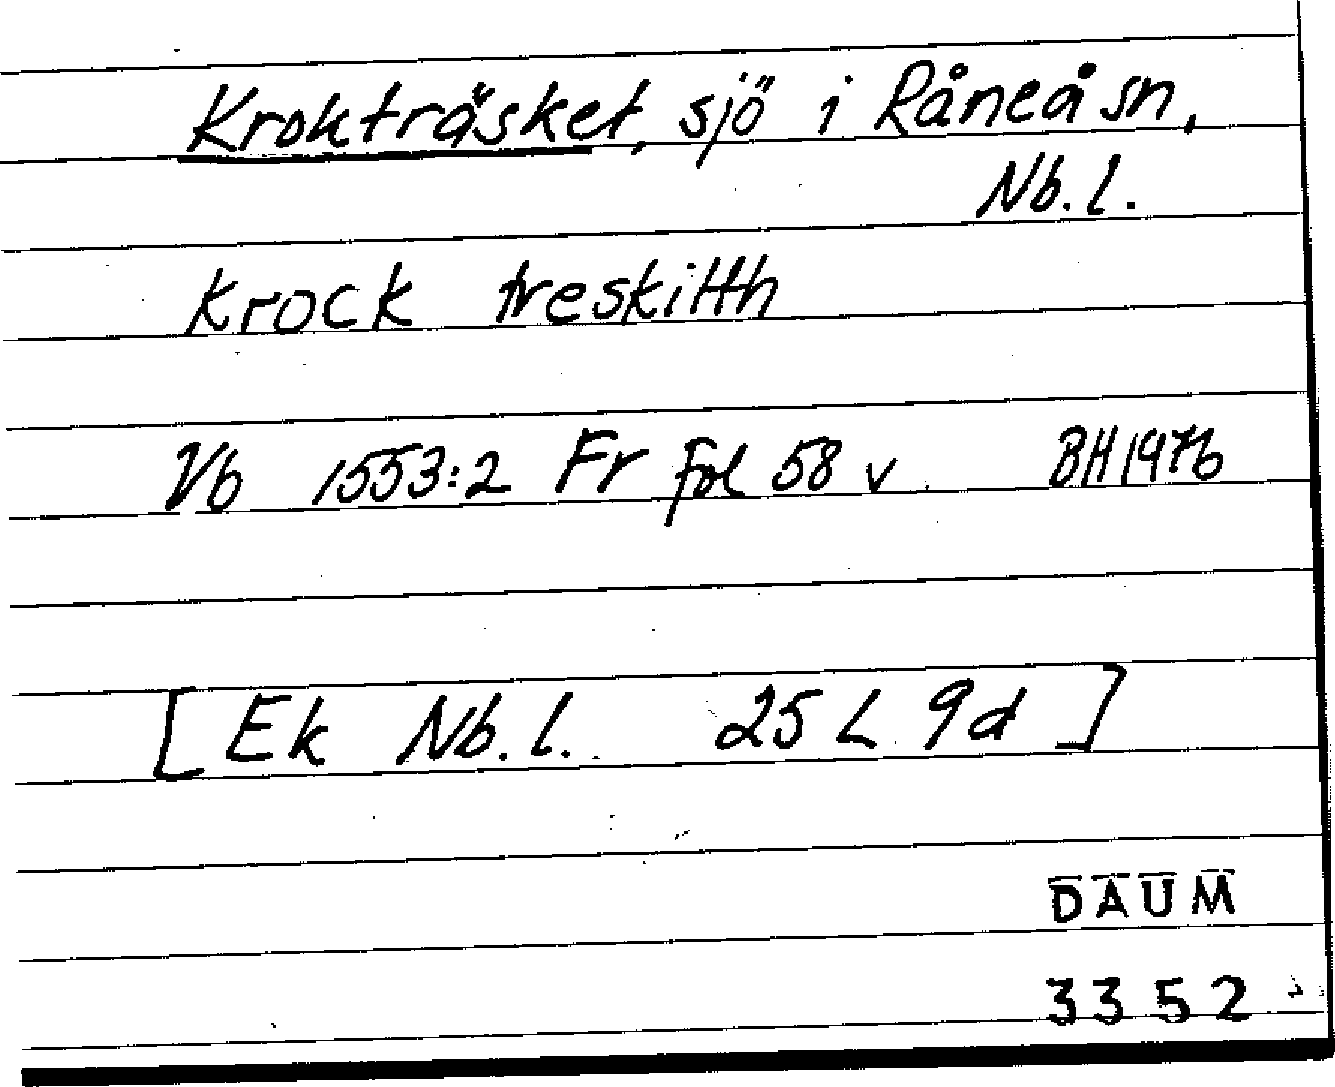 Krokträsket, sjö i Råneå sn,
Nb.l.
Krock treskitth
Vb 1553:2 Fr fol 58 v. BH 1976
[Ek Nb.l. 25 L 9d]
DAUM
3352